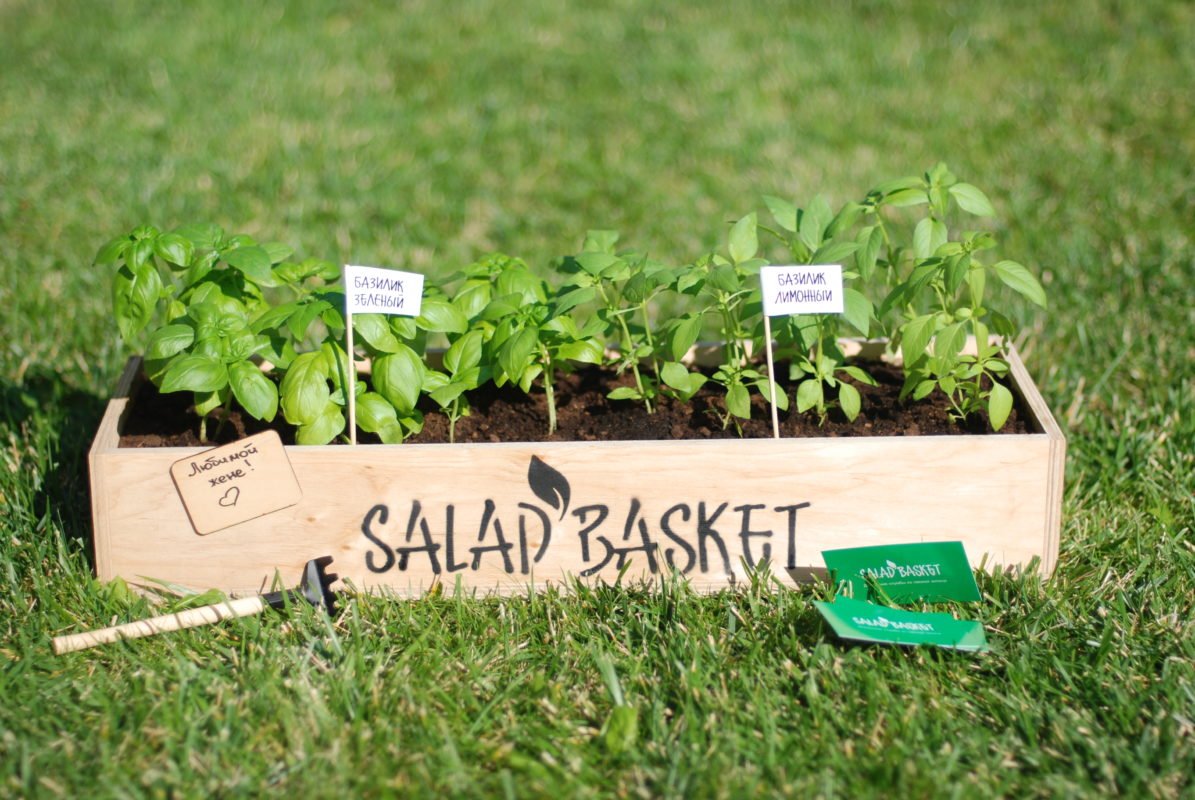 БАЗИЛИК
ЗЕЛЕНЫЙ
БАЗИЛИК
ЛИМОННЫЙ
Любимой
жене!
SALAD BASKET
SALAD BASKET
SALAD BASKET